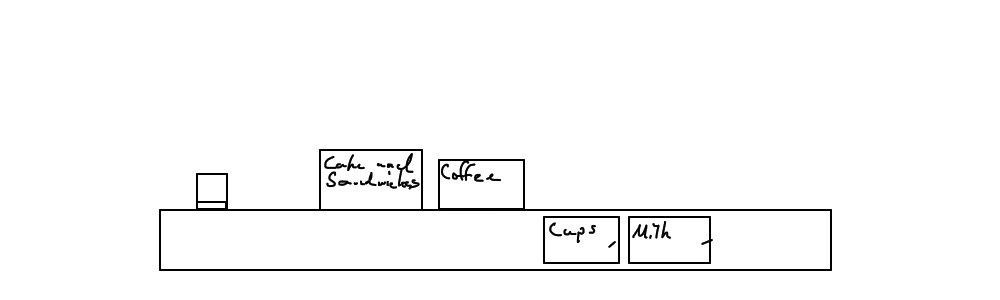 Cake and
Sandwiches
Coffee
Cups
Milk